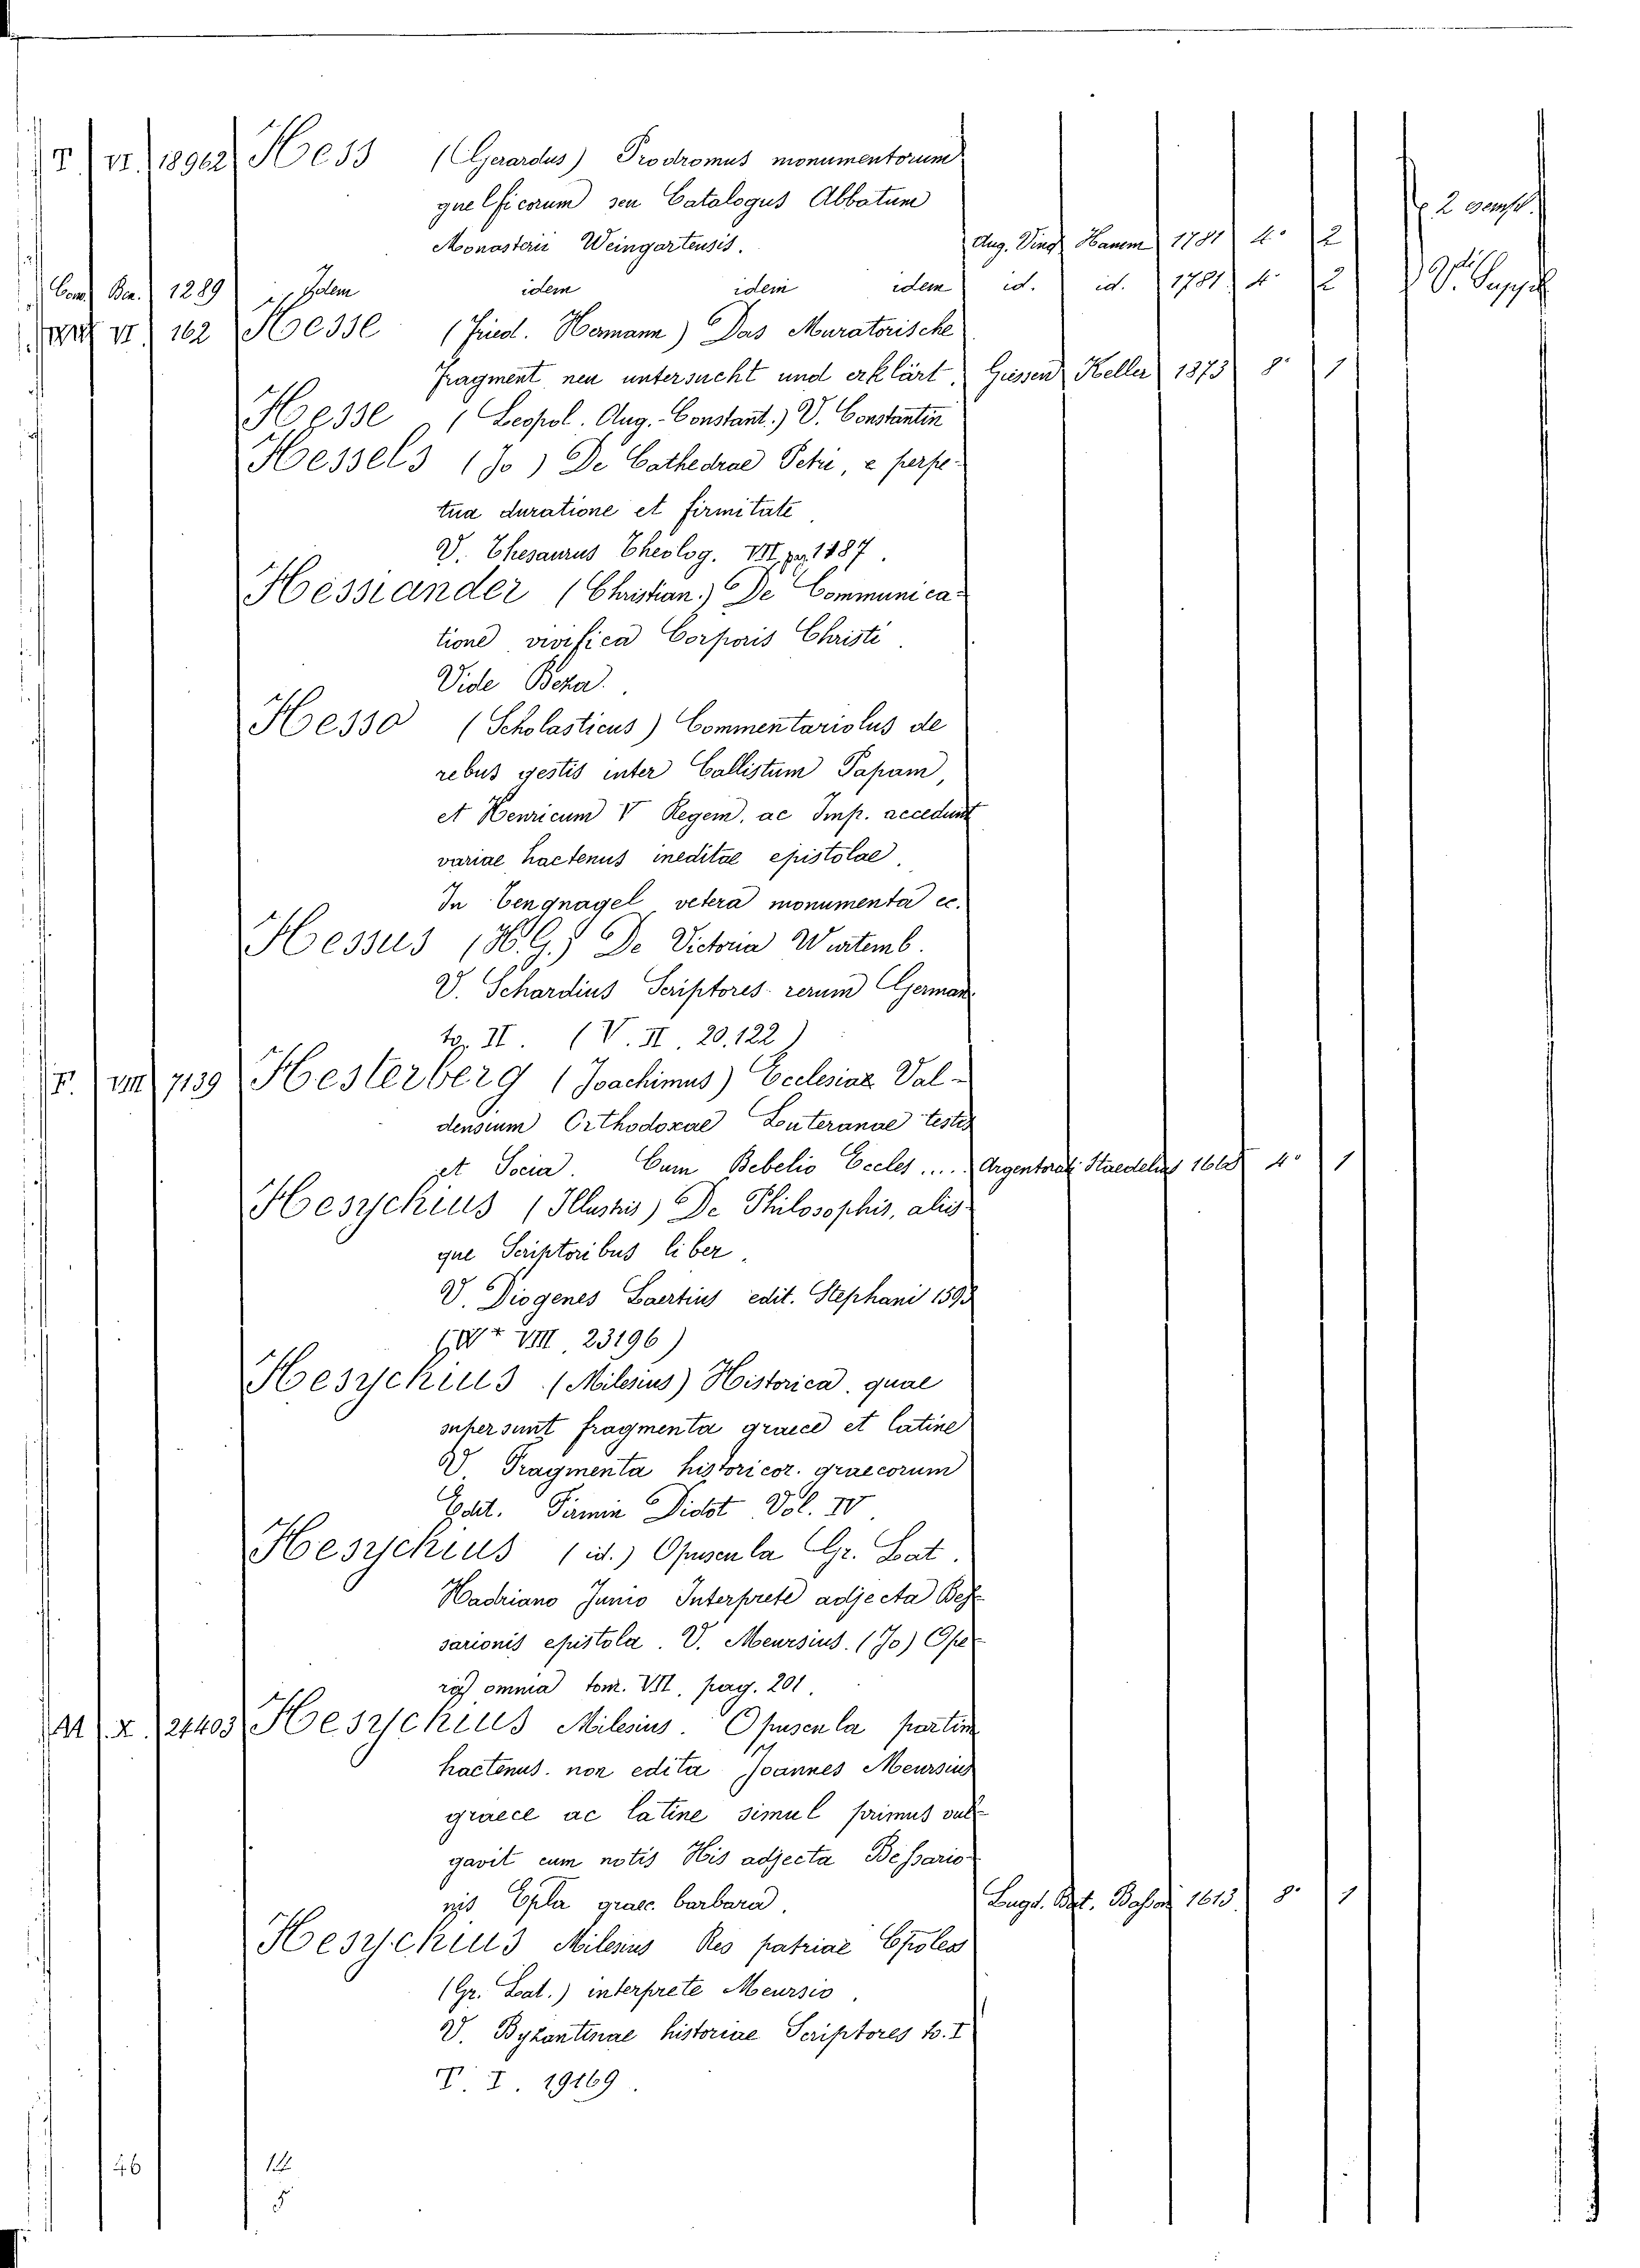 T. VI. 18962 Hess (Gerardus) Prodromus monumentorum
guelficorum seu Catalogus Abbatum
Monasterii Weingartensis. Aug. Vind. Hamm 1781 4° 2
Com. Ben. 1289 Idem idem idem idem id. id. 1781 4° 2
VI 162 Hesse (Fried. Hermann) Das Muratorische
Fragment neu untersucht und erklärt. Giessen Keller 1873 8° 1
Hesse (Leopol. Aug. Constant.) V. Constantin
Hessels (Jo) De Cathedrae Petri, e perpe-
tua duratione et firmitate
V. Thesaurus Theolog. VII pag. 1187.
Hessiander (Christian.) De Communica-
tione vivifica Corporis Christi.
Vide Beza.
Hesso (Scholasticus) Commentariolus de
rebus gestis inter Callistum Papam,
et Henricum V Regem, ac Imp. accedunt
variae hactenus ineditae epistolae.
In Tengnagel vetera monumenta ec.
Hessus (H. G.) De Victoria Wurtemb.
V. Schardius Scriptores rerum German
to. II. (V. II. 20.122)
F. VIII 7139 Hesterberg (Joachimus) Ecclesiae Val-
densium Orthodoxae Louteranae testis
et Socia. Cum Bebelio Eccles.... Argentorat. Staedelius 1668 4° 1
Hesychius (Illustris) De Philosophis, aliis-
que Scriptoribus liber.
V. Diogenes Laertius edit. Stephani 1593
VIII 23196)
Hesychius (Milesius) Historica, quae
supersunt fragmenta graece et latine
V Fragmenta historicor. graecorum
Edit. Firmin Didot Vol. IV.
Hesychius (id.) Opuscula Gr. Lat.
Hadriano Junio Interprete adjecta Bes-
sarionis epistola. V. Meursius. (Jo) Ope-
ra omnia tom. VII. pag. 201.
M X. 24403 Hesychius Milesius. Opuscula partim
hactenus non edita Joannes Meursius
graece ac latine simul primus vul-
gavit cum notis His adjecta Bessario-
nis Epla graec. barbara. Lugd. Bat. Basson 1613 8° 1
Hesychius Milesius Res patriae Cpoleos
(Gr. Lat.) interprete Meursio.
V. Byzantinae historiae Scriptores to. I
T. I. 19169.
46 12
5
2 exempl.
V. Suppl.